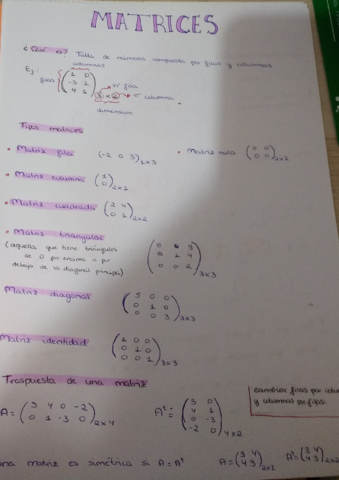 MATRICES
¿Qué es? Tabla de números compuesta por filas y columnas
columnas
Ej:
filas ( 1 0
-3 1
4 1 ) 3 x 2 nº columna
nº fila
dimensión
Tipos matrices
• Matriz fila (-2 0 3) 1x3 • Matriz nula ( 0 0
0 0 ) 2x2
• Matriz columna ( 1
0 ) 2x1
• Matriz cuadrada ( 2 4
0 1 ) 2x2
• Matriz triangular
(aquella que tiene triángulos
de 0 por encima o por
debajo de la diagonal principal)
0 0 2 ) 3x3
Matriz diagonal ( 5 0 0
0 1 0
0 0 3 ) 3x3
Matriz identidad ( 1 0 0
0 1 0
0 0 1 ) 3x3
Traspuesta de una matriz
cambiar filas por
y columnas por filas.
A = ( 3 4 0 -2
0 1 -3 0 ) 2x4
Aᵗ = ( 3 0
4 1
0 -3
-2 0 ) 4x2
una matriz es simétrica si A = Aᵗ A = ( 3 4
4 3 ) 2x2 Aᵗ = ( 3 4
4 3 ) 2x2